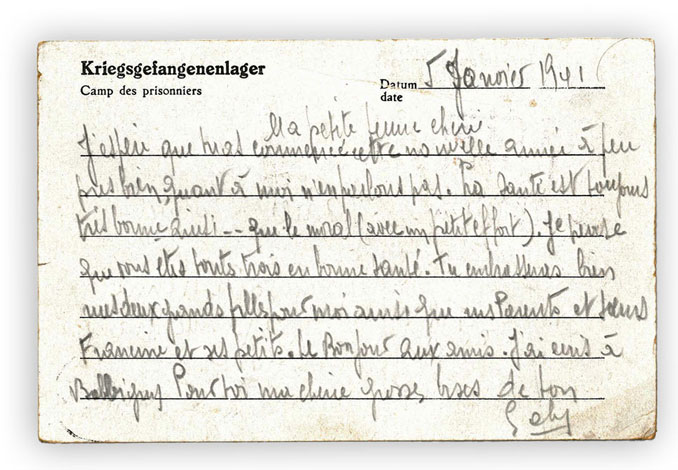 Kriegsgefangenenlager
Camp des prisonniers
Datum
date
5 Janvier 1941
Ma petite femme cherie
J'espère que tu as commencé cette nouvelle année à peu
près bien, quant à moi n'en parlons pas. La santé est toujours
très bonne ainsi -- que le moral (avec un petit effort). Je pense
que vous êtes toutes trois en bonne santé. Tu embrasseras bien
mes deux grands filles pour moi ainsi que mes Parents et
Francine et ses petits. Le Bonjour aux amis. J'ai écris à
Pour toi ma cherie grosses bises de ton
Gaby